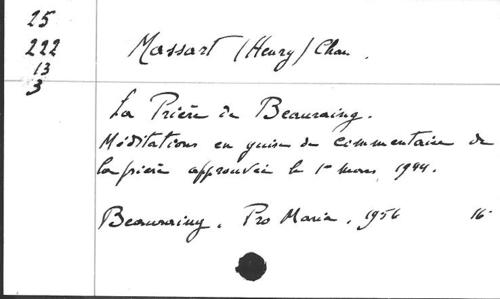 25
222
13
3
Massart (Henry) Chan.
La Prière de Beauraing.
Méditations en guise de commentaire de
la prière approuvée le 1er mars 1944.
Beauraing, Pro Maria, 1956 16°